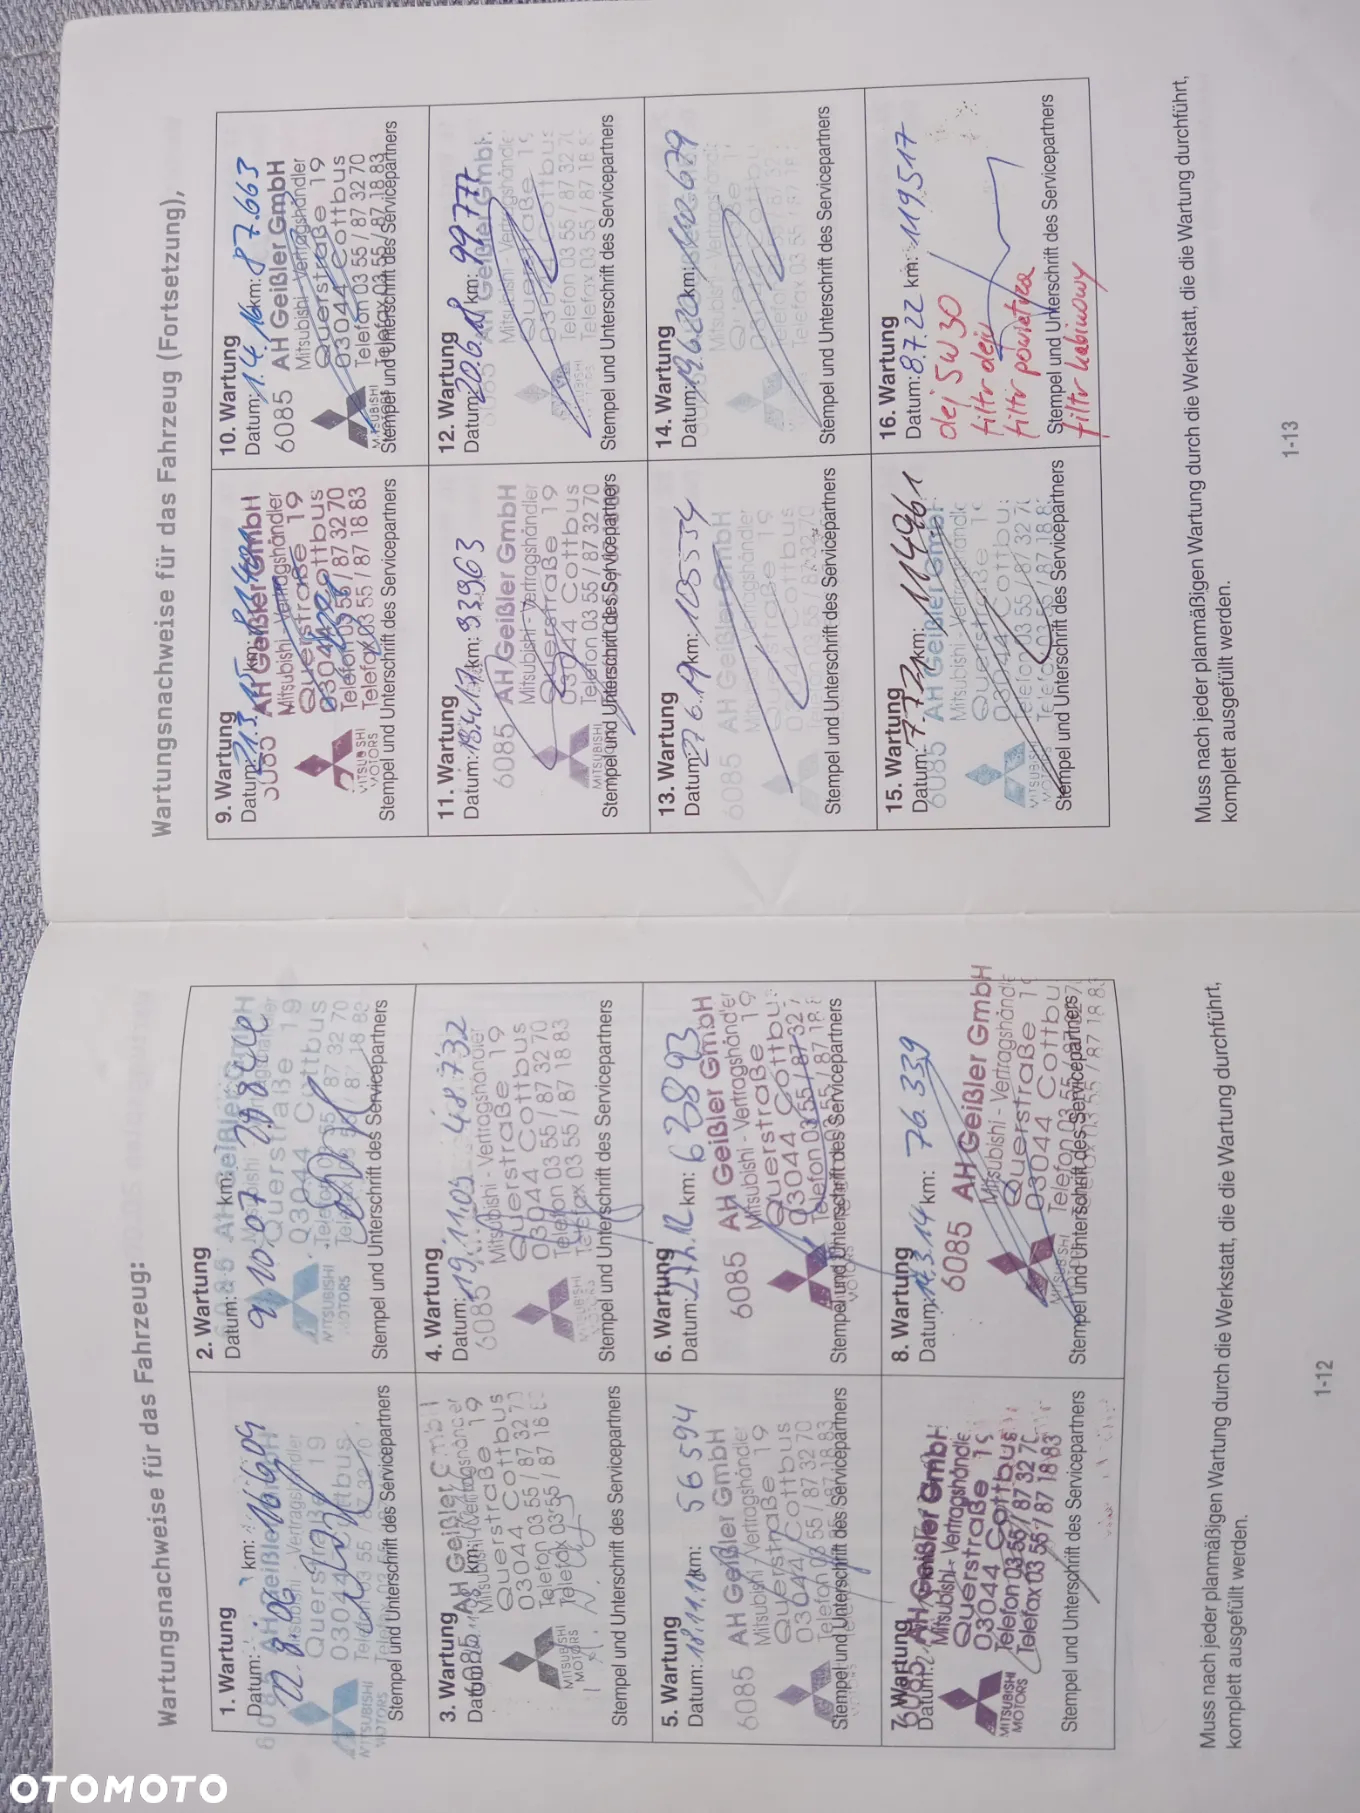 Wartungsnachweise für das Fahrzeug:
1. Wartung
Datum: km: 16909
22.8.06
AH Geißler GmbH
Mitsubishi - Vertragshändler
Querstraße 19
03044 Cottbus
MITSUBISHI
MOTORS
Stempel und Unterschrift des Servicepartners
2. Wartung
Datum: km:
9.10.07
6085 AH Geißler GmbH
Querstraße 19
03044 Cottbus
MITSUBISHI
MOTORS
Stempel und Unterschrift des Servicepartners
3. Wartung
Datum: km:
6085 AH Geißler GmbH
Mitsubishi - Vertragshändler
Querstraße 19
03044 Cottbus
Telefon 03 55 / 87 32 70
Telefax 03 55 / 87 18 8
MITSUBISHI
MOTORS
Stempel und Unterschrift des Servicepartners
4. Wartung
Datum: 19.11.09 48.732
6085
Mitsubishi - Vertragshändler
Querstraße 19
03044 Cottbus
Telefon 03 55 / 87 32 70
Telefax 03 55 / 87 18 83
MITSUBISHI
MOTORS
Stempel und Unterschrift des Servicepartners
5. Wartung
Datum: 18.11.10 km: 56594
6085 AH Geißler GmbH
Mitsubishi - Vertragshändler
Querstraße 19
03044 Cottbus
Telefon 03 55 / 87 32 70
Stempel und Unterschrift des Servicepartners
6. Wartung
Datum: km: 62893
6085 AH Geißler GmbH
Mitsubishi - Vertragshändler
Querstraße 19
03044 Cottbus
Telefon 03 55 / 87 32 7
MOTORS
Stempel und Unterschrift des Servicepartners
7. Wartung
Datum:
6085 AH Geißler GmbH
Mitsubishi - Vertragshändle
Querstraße 19
03044 Cottbus
Telefon 03 55 / 87 32 70
Telefax 03 55 / 87 18 83
MITSUBISHI
MOTORS
Stempel und Unterschrift des Servicepartners
8. Wartung
Datum: 14.3.14 km: 76.339
6085 AH Geißler GmbH
Mitsubishi - Vertragshändle
Querstraße 19
03044 Cottbu
Telefon 03 55 / 87 32 7
MITSUBISHI
Stempel und Unterschrift des Servicepartners
Muss nach jeder planmäßigen Wartung durch die Werkstatt, die die Wartung durchführt,
komplett ausgefüllt werden.
1-12
Wartungsnachweise für das Fahrzeug (Fortsetzung),
9. Wartung
Datum: km:
6085 AH Geißler GmbH
Mitsubishi - Vertragshändler
Querstraße 19
03044 Cottbus
Telefon 03 55 / 87 32 70
Telefax 03 55 / 87 18 83
MITSUBISHI
MOTORS
Stempel und Unterschrift des Servicepartners
10. Wartung
Datum: 1.4.16 km: 87.663
6085 AH Geißler GmbH
Mitsubishi - Vertragshändler
Querstraße 19
03044 Cottbus
Telefon 03 55 / 87 32 70
Telefax 03 55 / 87 18 83
MITSUBISHI
Stempel und Unterschrift des Servicepartners
11. Wartung
Datum: 18.4.17 km: 93.963
6085 AH Geißler GmbH
Mitsubishi - Vertragshändler
Querstraße 19
03044 Cottbus
Telefon 03 55 / 87 32 70
MITSUBISHI
Stempel und Unterschrift des Servicepartners
12. Wartung
Datum: 20.6.18 km: 99777
AH Geißler GmbH
Mitsubishi - Vertragshändle
Querstraße 19
03044 Cottbus
Telefon 03 55 / 87 32 70
Telefax 03 55 / 87 18 8
Stempel und Unterschrift des Servicepartners
13. Wartung
Datum: 27.6.19 km: 105534
6085 AH Geißler GmbH
Mitsubishi - Vertragshändler
Querstraße 19
03044 Cottbus
Stempel und Unterschrift des Servicepartners
14. Wartung
Datum: 19.6.20 km:
Mitsubishi - Vertragshändle
Querstraße 19
Telefon 03 55 / 87 32
Telefax 03 55 / 87 18 8
Stempel und Unterschrift des Servicepartners
15. Wartung
Datum: 7.7.21 km: 114961
6085 AH Geißler GmbH
Mitsubishi - Vertragshändle
Querstraße 19
03044 Cottbus
Telefon 03 55 / 87 32 70
MITSUBISHI
Stempel und Unterschrift des Servicepartners
16. Wartung
Datum: 8.7.22 km: 119517
olej 5W30
filtr oleju
filtr powietrza
Stempel und Unterschrift des Servicepartners
filtr kabinowy
Muss nach jeder planmäßigen Wartung durch die Werkstatt, die die Wartung durchführt,
komplett ausgefüllt werden.
1-13
OTOMOTO